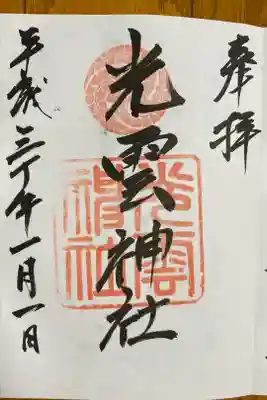 奉拝
光雲神社
光雲
神社
平成三十年一月一日